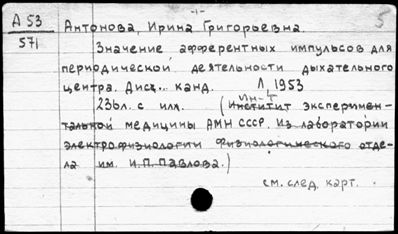 -1-
5
А 53
571
Антонова, Ирина Григорьевна.
Значение афферентных импульсов для
периодической деятельности дыхательного
центра. Дисс... канд. Л, 1953
236л. с илл. (Институт эксперимен-
Ин-т
тальной медицины АМН СССР. Из лаборатории
электрофизиологии физиологического отде-
ла им. И.П. Павлова.)
см. след. карт.